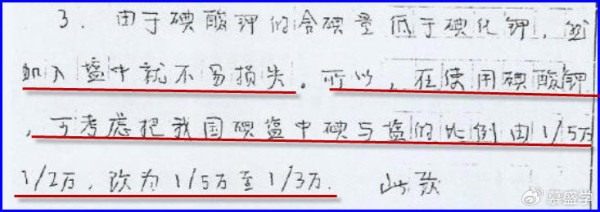 3. 由于碘酸钾的含碘量低于碘化钾，
加入盐中就不易损失。所以，在使用碘酸钾
，可考虑把我国碘盐中碘与盐的比例由1/5万
1/2万，改为1/5万至1/3万. 此致
@襄盛学